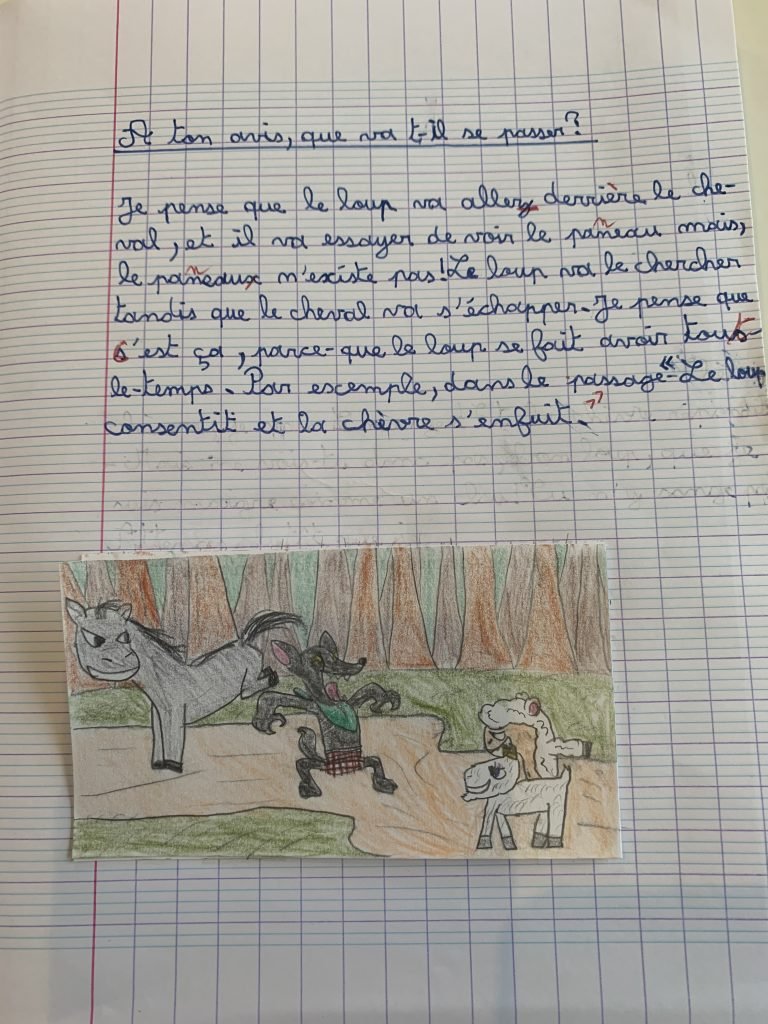 A ton avis, que va t-il se passer?
Je pense que le loup va aller derrière le che-
val, et il va essayer de voir le panneau mais,
le panneaux n'existe pas! Le loup va le chercher
tandis que le cheval va s'échapper. Je pense que
c'est ça, parce-que le loup se fait avoir tout-
le-temps. Par escemple, dans le passage "Le loup
consentit et la chèvre s'enfuit."